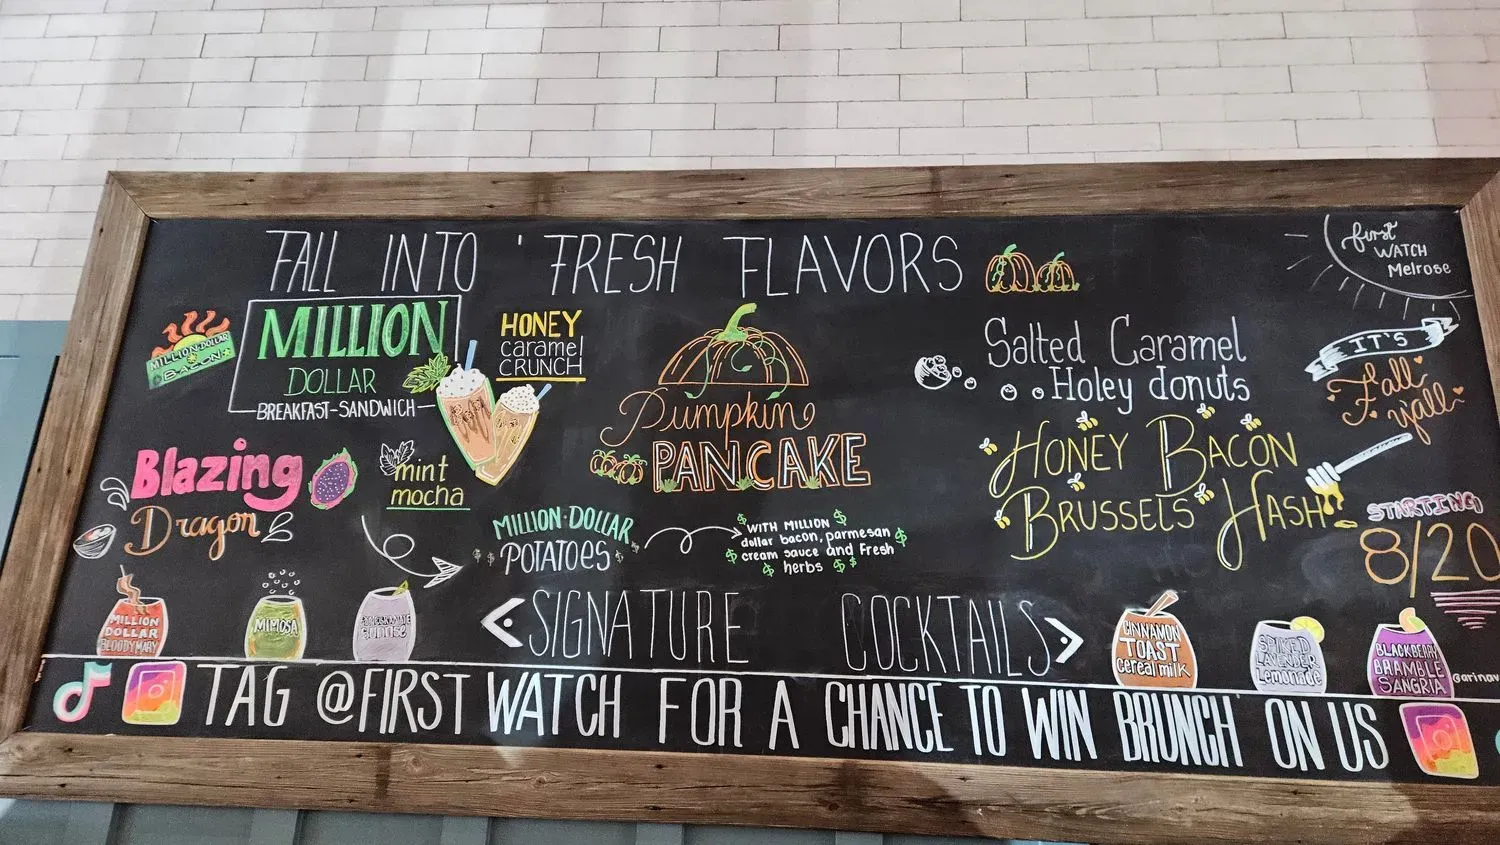 FALL INTO 'FRESH FLAVORS
first
WATCH
Melrose
MILLION-DOLLAR
BACON
MILLION
DOLLAR
BREAKFAST-SANDWICH
HONEY
caramel
CRUNCH
Pumpkin
PANCAKE
Salted Caramel
Holey donuts
IT'S
Fall
y'all
Blazing
Dragon
mint
mocha
MILLION-DOLLAR
POTATOES
WITH MILLION
dollar bacon, parmesan
cream sauce and fresh
herbs
HONEY BACON
BRUSSELS HASH
STARTING
8/20
MILLION
DOLLAR
BLOODY MARY
MIMOSA
Sunrise
SIGNATURE COCKTAILS
CINNAMON
TOAST
cereal milk
SPIKED
LAVENDER
Lemonade
BLACKBERRY
BRAMBLE
SANGRIA
TAG @FIRST WATCH FOR A CHANCE TO WIN BRUNCH ON US